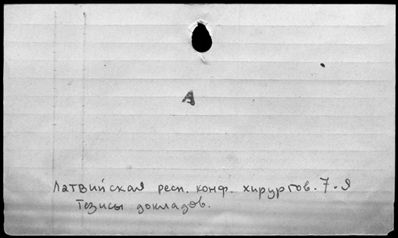 А
Латвийская респ. конф. хирургов. 7-я
Тезисы докладов.